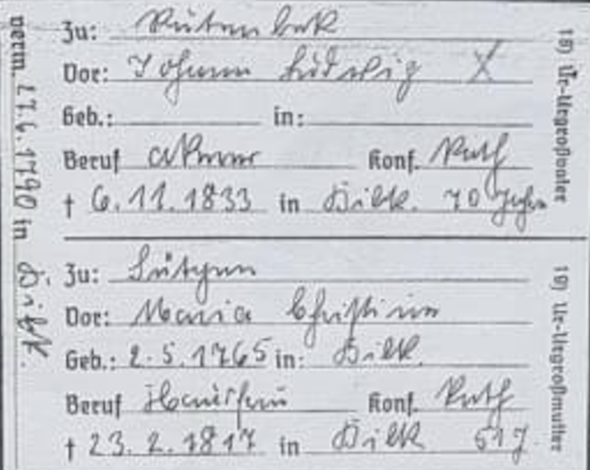 Zu: Rütenbek
Vor: Johann Ludwig X
Geb.: in:
Beruf Konf. Kath
† 6.11.1833 in Bilk. 70 Jahre
18) Ur-Urgroßvater
verm. 27.6.1790 in Bilk.
Zu:
Vor: Maria Christina
Geb.: 2.5.1765 in: Bilk.
Beruf Hausfrau Konf. Kath
† 23.2.1817 in Bilk 51 J.
19) Ur-Urgroßmutter